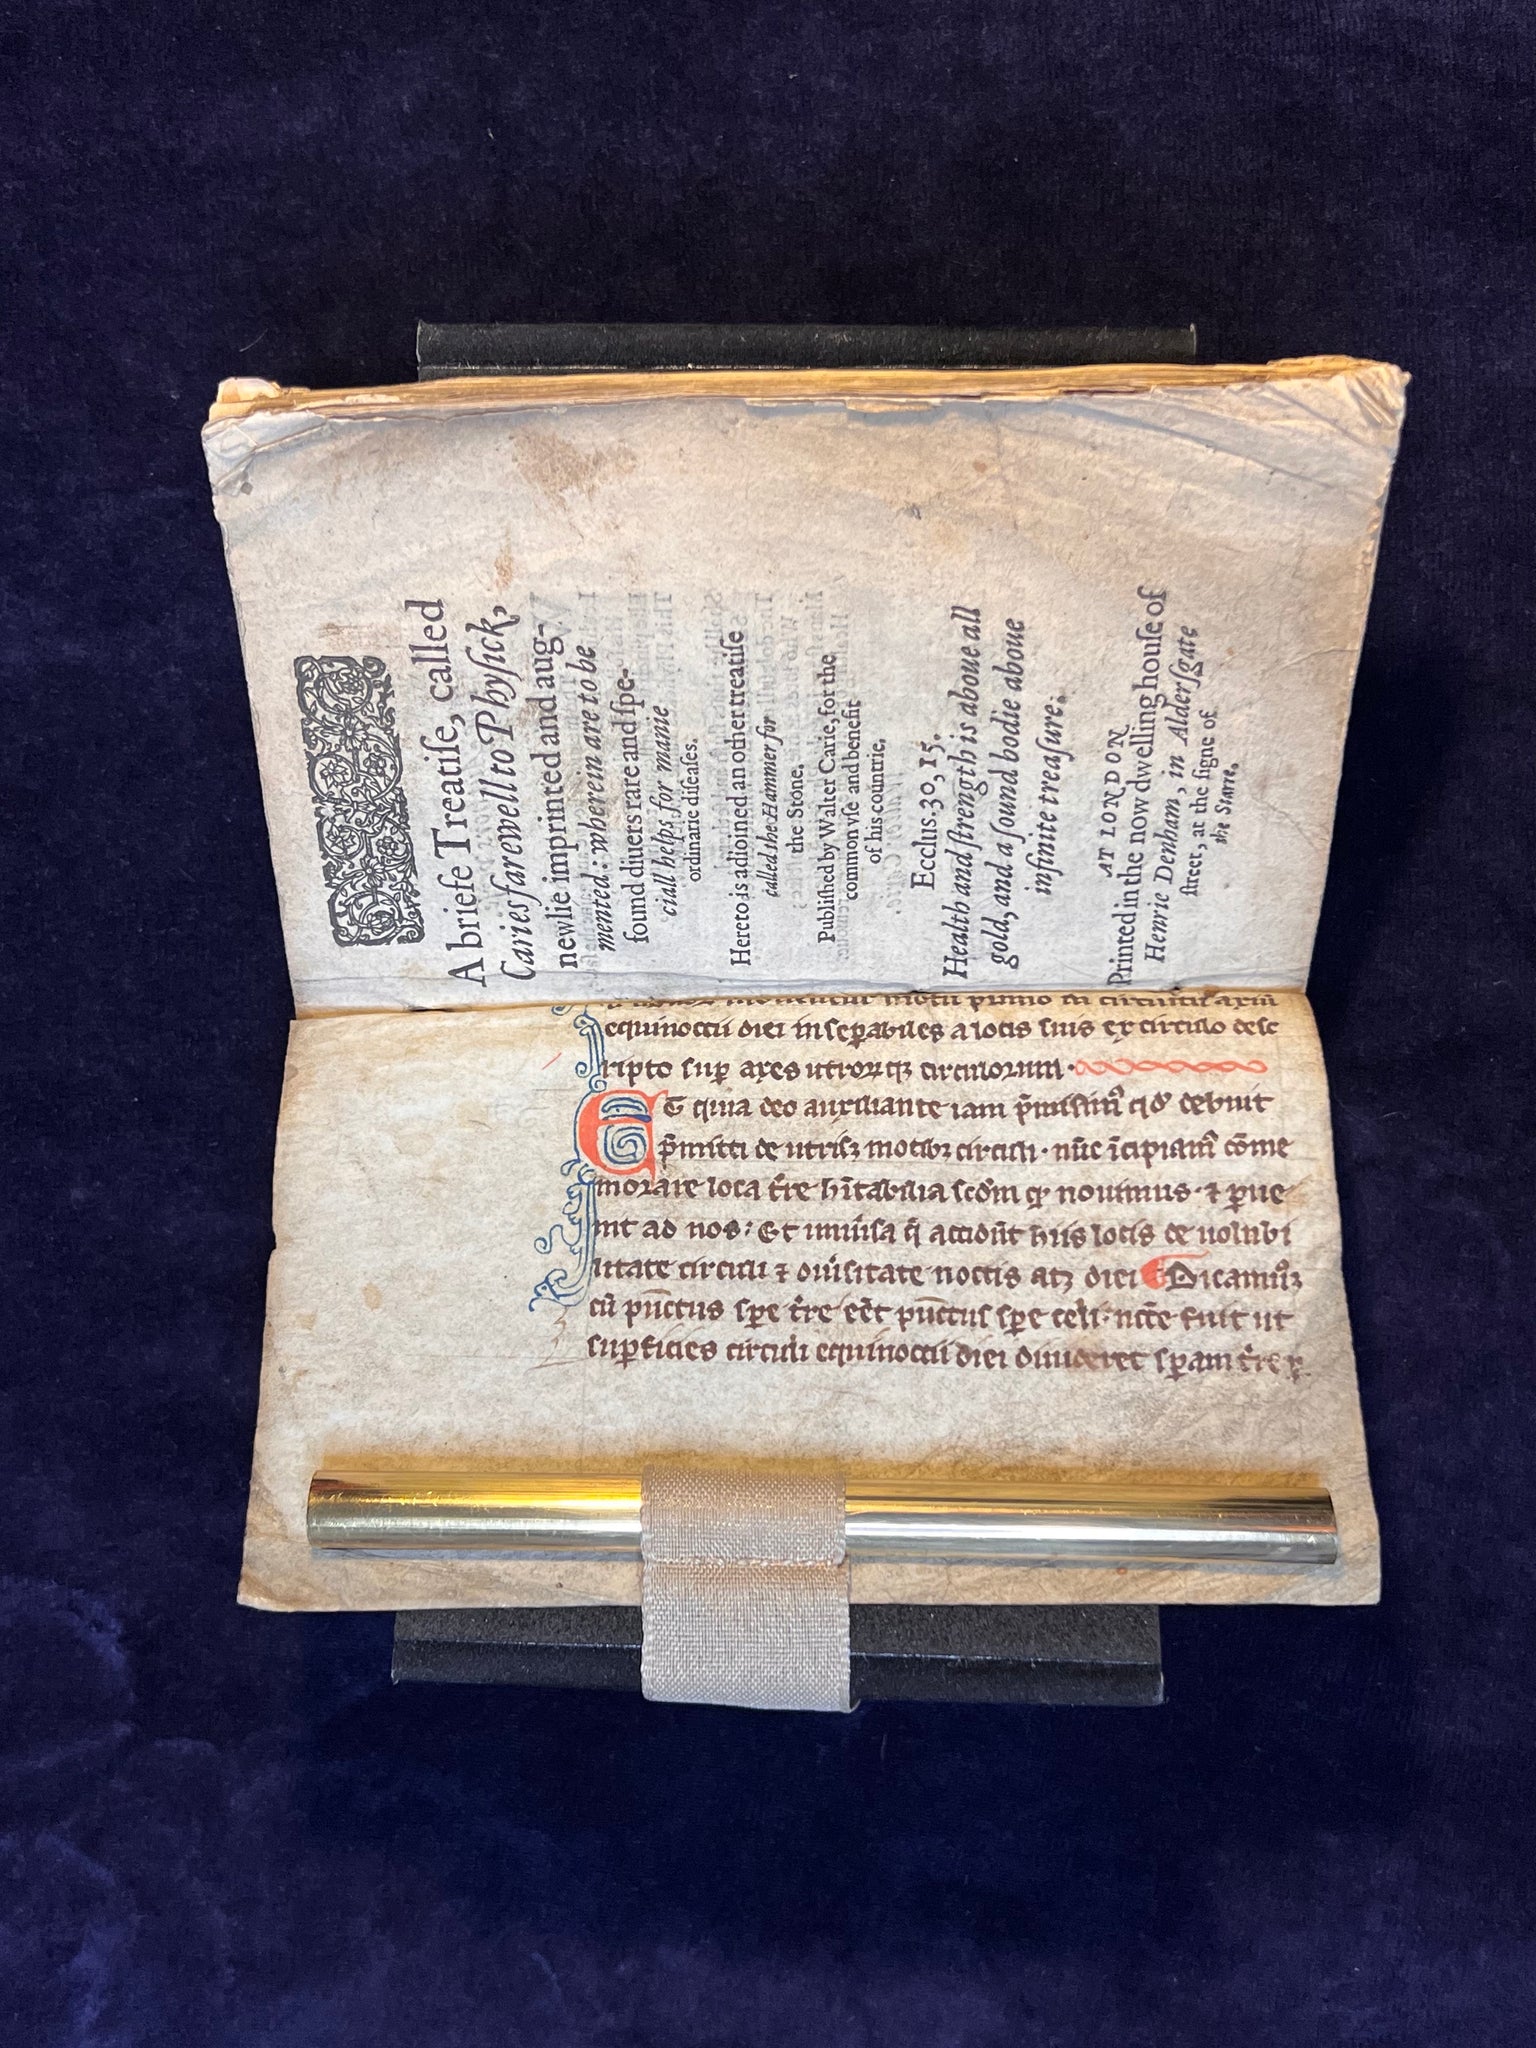 A briefe Treatiſe, called
Caries farewell to Phyſick,
newlie imprinted and aug-
mented: wherein are to be
found diuers rare and ſpe-
ciall helps for manie
ordinarie diſeaſes.
Hereto is adioined an other treatiſe
called the Hammer for
the Stone.
Publiſhed by Walter Carie, for the
common vſe and benefit
of his countrie.
Ecclus. 30, 15.
Health and ſtrength is aboue all
gold, and a ſound bodie aboue
infinite treaſure.
AT LONDON
Printed in the now dwelling houſe of
Henrie Denham, in Alderſgate
ſtreet, at the ſigne of
the Starre.
motu primo in circuitu axiū
equinoctii diei inseꝑabiles a locis suis ex circulo desc
ripto suꝑ axes utrorūqꝫ circulorum·
Et quia deo auxiliante iam p̄misim᷒ qd̛ debuit
p̄mitti de utrisqꝫ motibꝫ circuli· nūc īcipiam᷒ cōme
morare loca t̄re h̄itabilia scd̄m qd̛ nouimus· ⁊ ꝑue
nit ad nos· Et uniu̓sa q̄ accidūt hiis locis de uolubi
litate circuli ⁊ diu̓sitate noctis atqꝫ diei Dicamus᷒
cū pūctus spe t̄re eēt pūctus spe celi· nc̄e fuit ut
suꝑficies circuli equinoctii diei diuideret speram t̄re